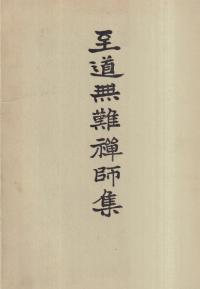 至道無難禪師集